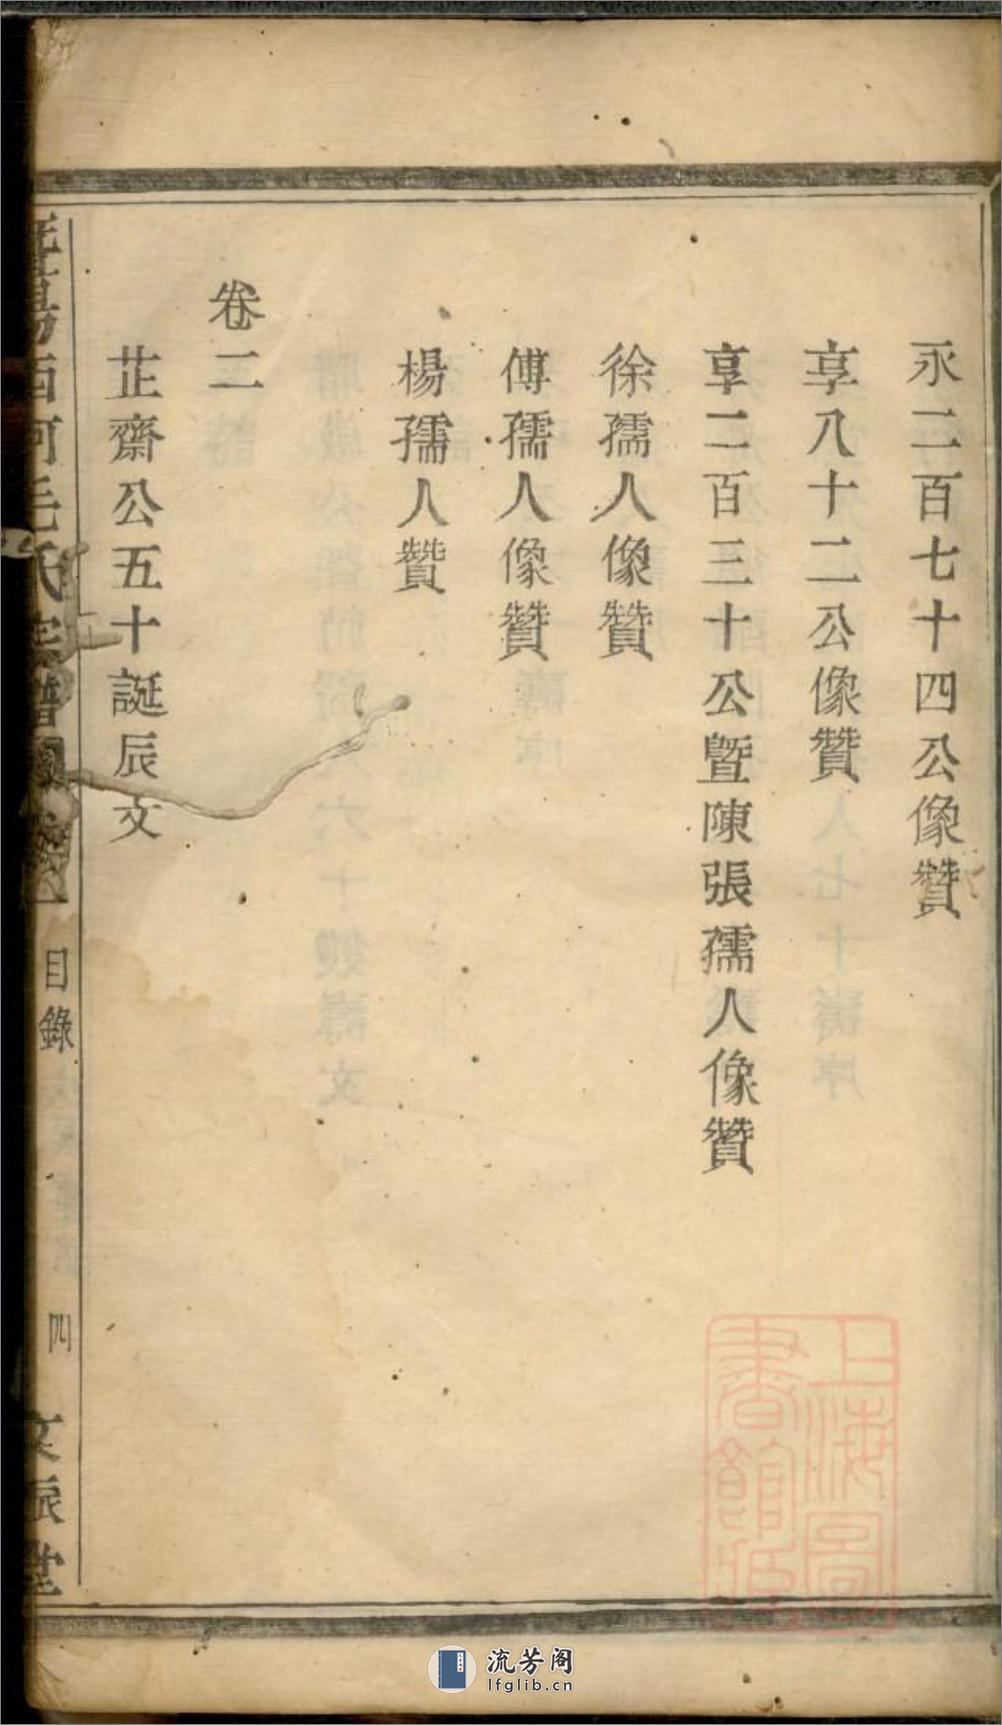 永二百七十四公像贊
享八十二公像贊
享二百三十公曁陳張孺人像贊
徐孺人像贊
傅孺人像贊
楊孺人贊
卷二
芷齋公五十誕辰文
西河毛氏宗譜
目錄
四
文辰堂
上海圖書館藏
流芳阁
lfglib.cn